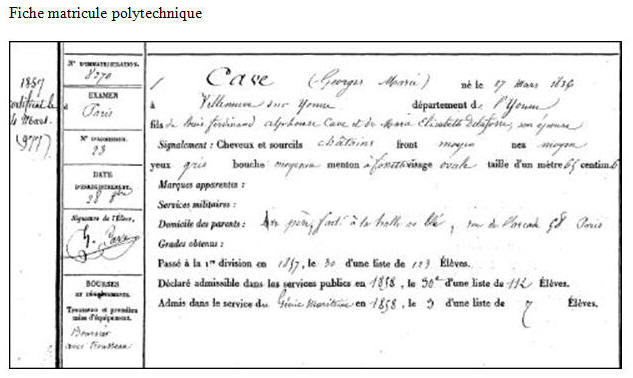 Fiche matricule polytechnique
1857
4 Mars
N° D'IMMATRICULATION.
8270
EXAMEN
à
Paris
N° D'ADMISSION.
23
DATE
D'ENREGISTREMENT.
28 8bre
Signature de l'Élève.
G. Cave
BOURSES
ET DÉGRÈVEMENTS.
Trousseau et première
mise d'équipement.
Boursier
avec trousseau
Cave (Georges Marie) né le 27 Mars 1836
à Villeneuve sur Yonne département de l'Yonne
fils de Louis Ferdinand Alphonse Cave et de Marie Elisabeth son épouse
Signalement : Cheveux et sourcils châtains front moyen nez moyen
yeux gris bouche moyenne menton à fossette visage ovale taille d'un mètre 65 centim
Marques apparentes :
Services militaires :
Domicile des parents : père, à la halle au blé, rue de 58 Paris
Grades obtenus :
Passé à la 1re division en 1857, le 30 d'une liste de 123 Élèves.
Déclaré admissible dans les services publics en 1858, le 30e d'une liste de 112 Élèves.
Admis dans le service du Génie Maritime en 1858, le 3 d'une liste de 7 Élèves.